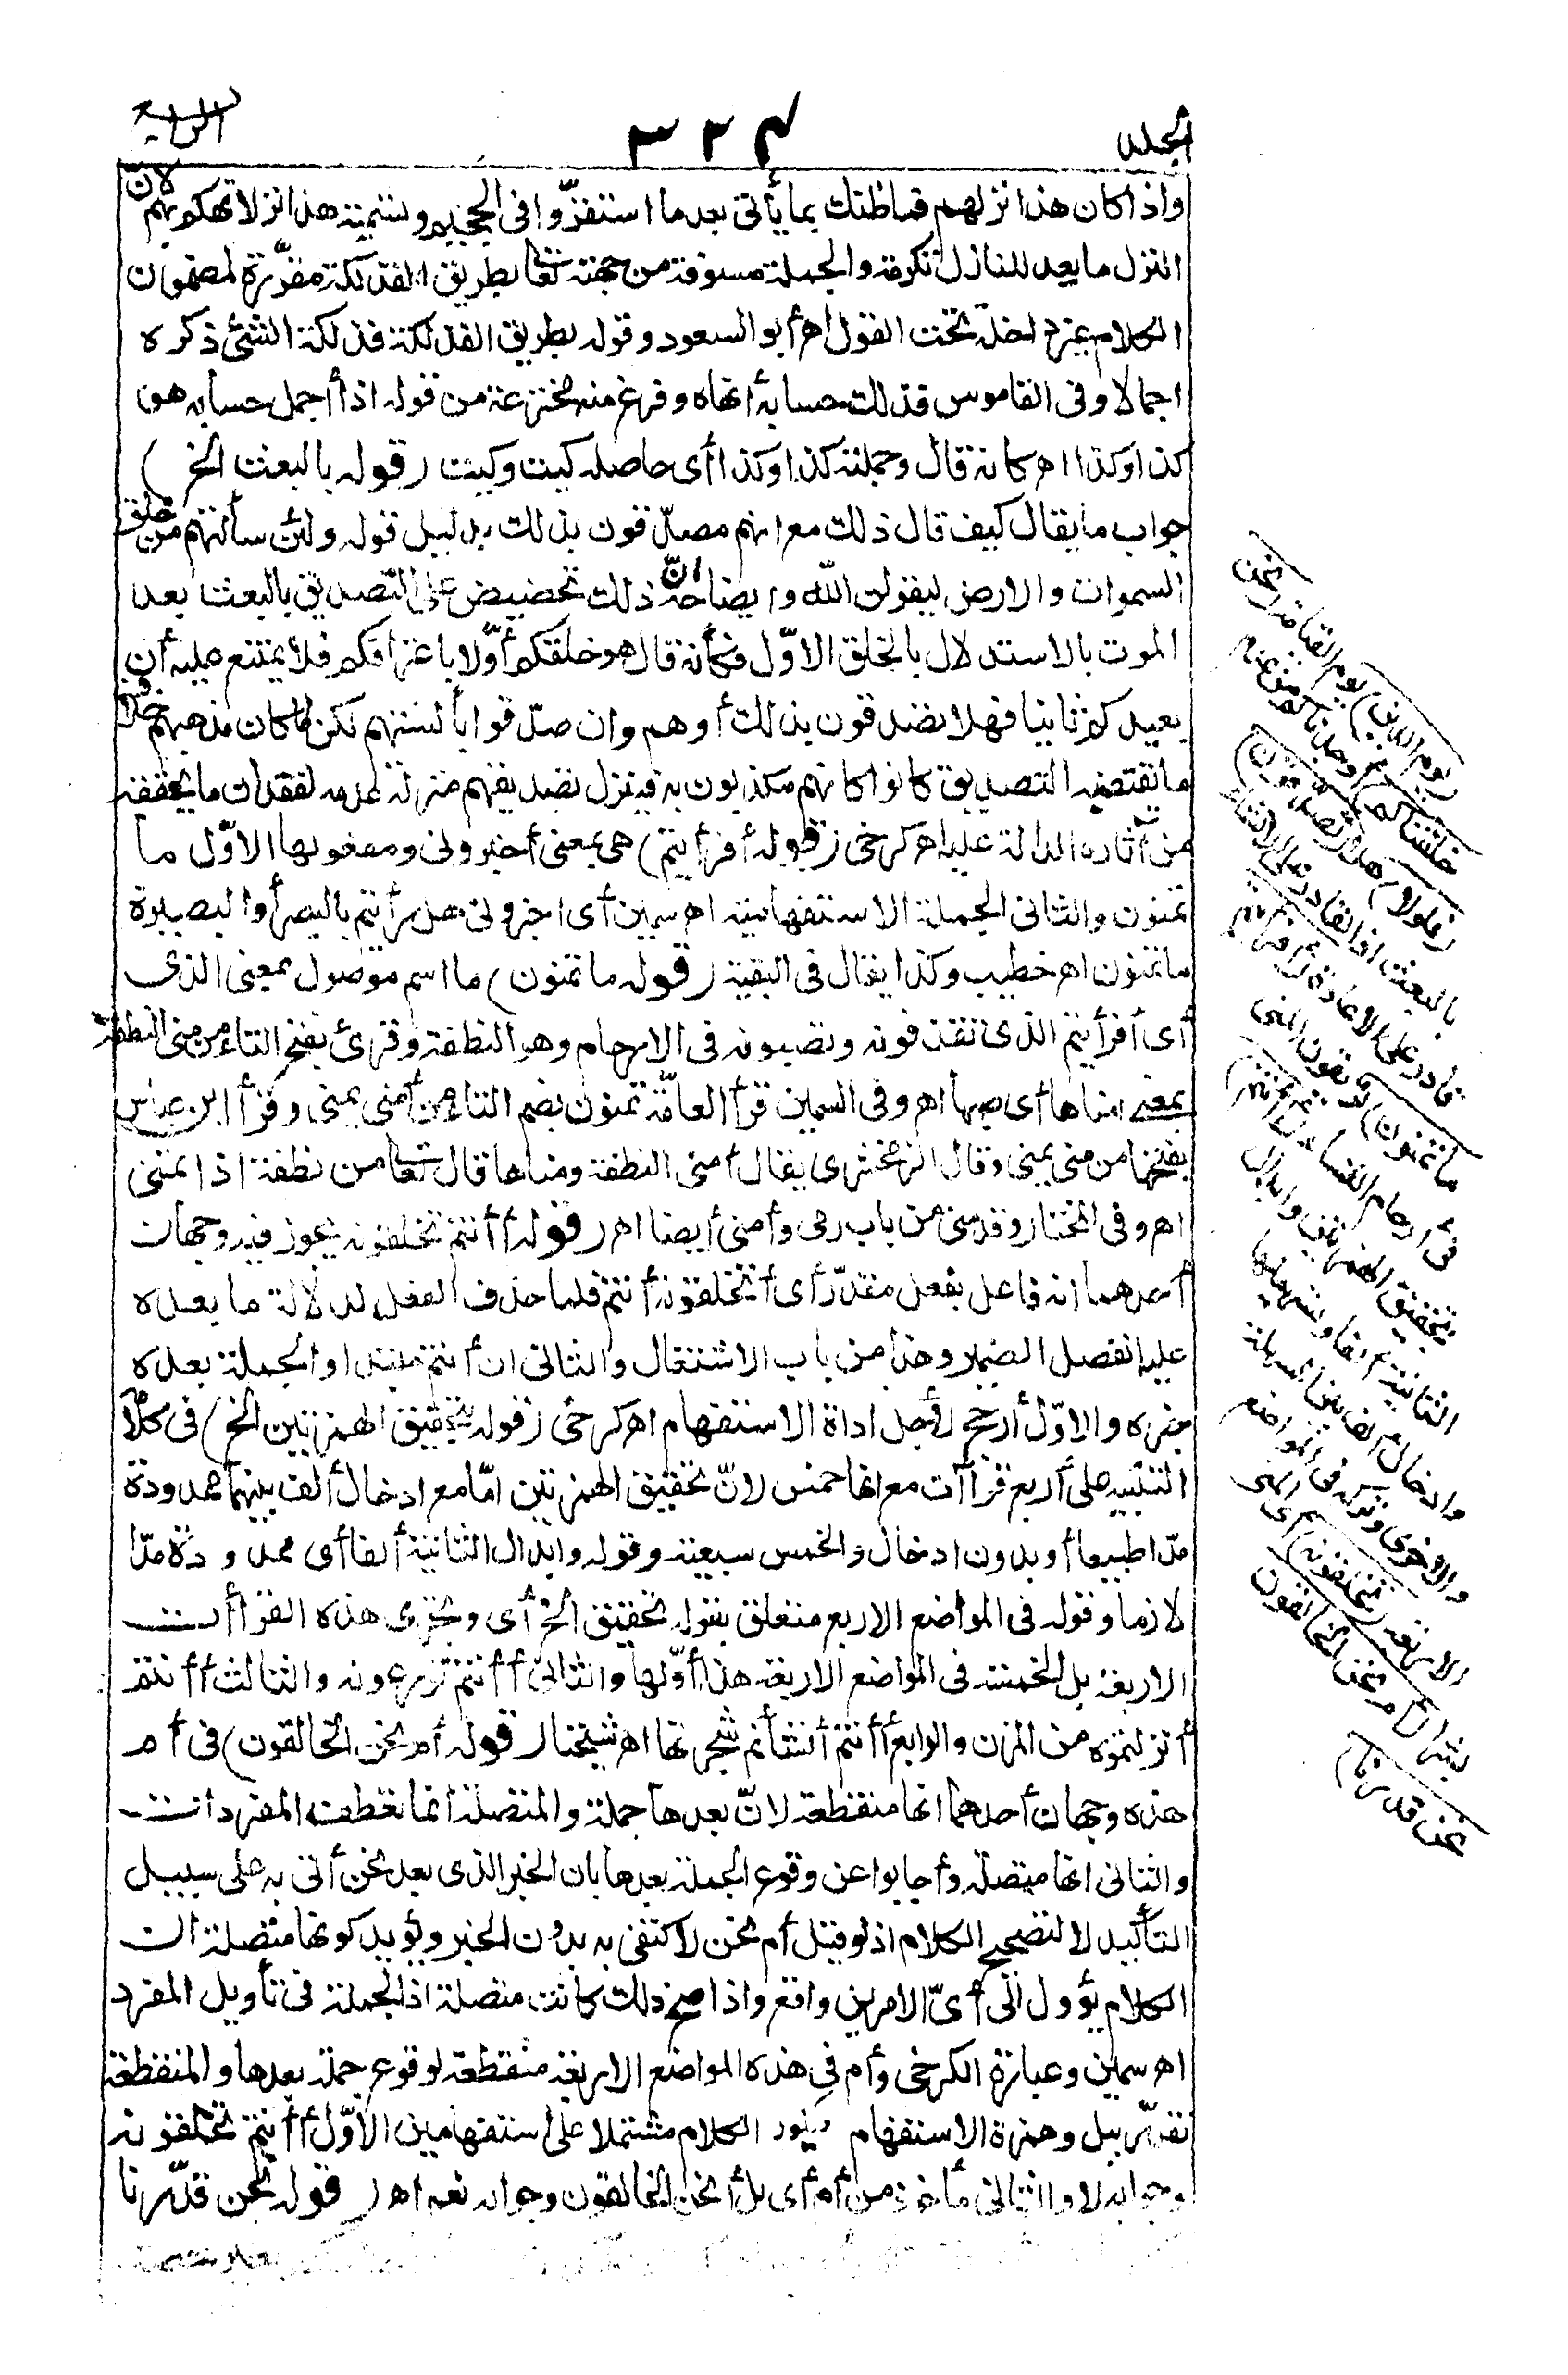 الجلد
٣٢٤
الرابع
واذا كان هذا نزلهم فما ظنك بما يأتى بعد ما استقرّوا فى الجحيم وتسمية هذا نزلا تهكم بهم لانّ
النزل ما يعد للنازل تكرمة والجملة مسوقة من جهته تعالى بطريق الفذلكة مقرّرة لمضمون
الكلام غير داخلة تحت القول اهـ أبو السعود وقوله بطريق الفذلكة فذلكة الشئ ذكره
اجمالا وفى القاموس فذلك حسابه أنهاه وفرغ منه مخترعة من قوله اذا أجمل حسابه هو
كذا وكذا اهـ كانه قال وجملته كذا وكذا أى حاصله كيت وكيت (قوله بالبعث الخ)
جواب ما يقال كيف قال ذلك مع انهم مصدّقون بذلك بدليل قوله ولئن سألتهم من خلق
السموات والارض ليقولن الله وايضاحه انّ ذلك تحضيض على التصديق بالبعث بعد
الموت بالاستدلال بالخلق الاوّل فكأنه قال هو خلقكم أوّلا باعترافكم فلا يمتنع عليه أن
يعيدكم ثانيا فهلا تصدقون بذلك أو هم وان صدّقوا بألسنتهم لكن لما كان مذهبهم خلاف
ما يقتضيه التصديق كانوا كانهم مكذبون به فينزل تصديقهم منزلة عدمه لفقدان ما يحققه
من آثاره الدالة عليه اهـ كرخى (قوله أفرأيتم) هى بمعنى أخبرونى ومفعولها الاوّل ما
تمنون والثانى الجملة الاستفهامية اهـ سمين أى اخبرونى هل رأيتم بالبصر أو البصيرة
ما تمنون اهـ خطيب وكذا يقال فى البقية (قوله ما تمنون) ما اسم موصول بمعنى الذى
أى أفرأيتم الذى تقذفونه وتصبونه فى الارحام وهو النطفة وقرئ بفتح التاء من منى النطفة
بمعنى امناها أى صبها اهـ وفى السمين قرأ العامّة تمنون بضم التاء من أمنى يمنى وقرأ ابن عباس
بفتحها من منى يمنى وقال الزمخشرى يقال أمنى النطفة ومناها قال تعالى من نطفة اذا تمنى
اهـ وفى المختار وقد منى من باب رمى وأمنى أيضا اهـ (قوله أأنتم تخلقونه يجوز فيه وجهان
أحدهما انه فاعل بفعل مقدّر أى أتخلقونه أنتم فلما حذف الفعل لدلالة ما بعده
عليه انفصل الضمير وهذا من باب الاشتغال والثانى ان أنتم مبتدا والجملة بعده
خبره والاوّل أرجح لأجل اداة الاستفهام اهـ كرخى (قوله بتحقيق الهمزتين الخ) فى كلامه
التنبيه على أربع قراآت مع انها خمس لانّ تحقيق الهمزتين امّا مع ادخال ألف بينهما ممدودة
مدّا طبيعيا أو بدون ادخال والخمس سبعية وقوله وابدال الثانية ألفا أى ممدودة مدّا
لازما وقوله فى المواضع الاربع متعلق بقوله تحقيق الخ أى وتجرى هذه القراآت
الاربعة بل الخمسة فى المواضع الاربعة هذا أوّلها والثانى أأنتم تزرعونه والثالث أأنتم
أنزلتموه من المزن والرابع أأنتم أنشأتم شجرتها اهـ شيخنا (قوله أم نحن الخالقون) فى أم
هذه وجهان أحدهما انها منقطعة لانّ بعدها جملة والمتصلة انما تعطف المفردات
والثانى انها متصلة وأجابوا عن وقوع الجملة بعدها بان الخبر الذى بعد نحن أتى به على سبيل
التأكيد لا لتصحيح الكلام اذ لو قيل أم نحن لاكتفى به بدون الخبر ويؤيد كونها متصلة ان
الكلام يؤول الى أىّ الامرين واقع واذا صح ذلك كانت متصلة اذ الجملة فى تأويل المفرد
اهـ سمين وعبارة الكرخى وأم فى هذه المواضع الاربعة منقطعة لوقوع جملة بعدها والمنقطعة
تقدّر ببل وهمزة الاستفهام فيكون الكلام مشتملا على استفهامين الاوّل أأنتم تخلقونه
وجوابه لا والثانى مأخوذ من أم أى بل أنحن الخالقون وجوابه نعم اهـ (قوله نحن قدّرنا
(يوم الدين) يوم القيامة (نحن
خلقناكم) أوجدناكم من عدم
(فلولا) هلا (تصدّقون)
بالبعث اذ القادر على الانشاء
قادر على الاعادة (أفرأيتم
ما تمنون) تريقون المنى
فى أرحام النساء (أأنتم)
بتحقيق الهمزتين وابدال
الثانية ألفا وتسهيلها
وادخال ألف بين المسهلة
والاخرى وتركه فى المواضع
الاربعة (تخلقونه) أى المنى
بشرا (أم نحن الخالقون
نحن قدّرنا)